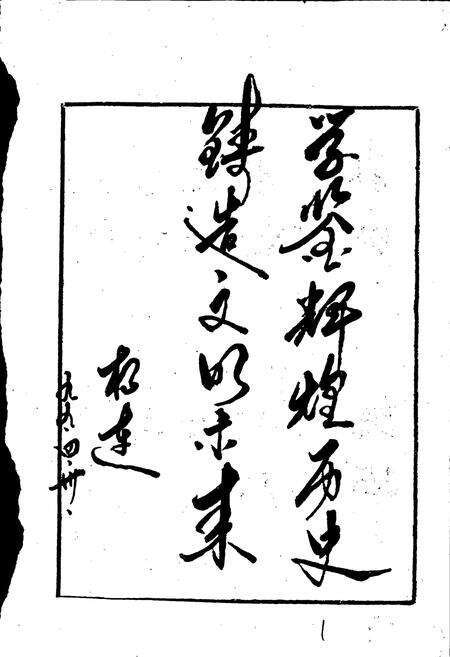 学鉴辉煌历史
铸造文明未来
1